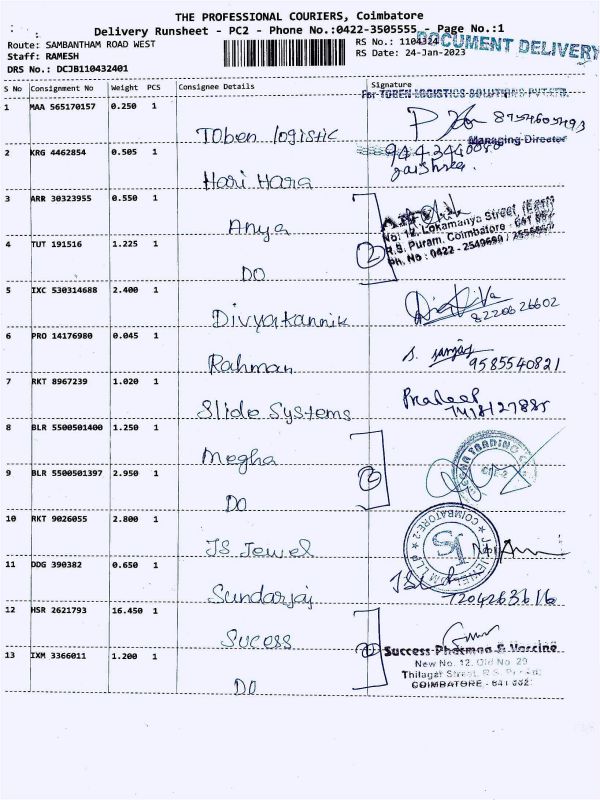 THE PROFESSIONAL COURIERS, Coimbatore
Delivery Runsheet - PC2 - Phone No.:0422-3505555, - Page No.:1
Route: SAMBANTHAM ROAD WEST
RS No.: 1104324
DOCUMENT DELIVERY
Staff: RAMESH
RS Date: 24-Jan-2023
DRS No.: DCJB110432401
S No Consignment No Weight PCS Consignee Details Signature
For TOBEN LOGISTICS SOLUTIONS PVT.LTD.
1 MAA 565170157 0.250 1
Toben logistic
Managing Director
2 KRG 4462854 0.505 1
Hari Hara
Jaishree.
3 ARR 30323955 0.550 1
Anya
No: 12, Lokamanya Street (East)
R.S. Puram, Coimbatore
Ph. No : 0422 - 2549699
4 TUT 191516 1.225 1
DO
2
5 IXC 530314688 2.400 1
Divyakannik
8220626602
6 PRO 14176980 0.045 1
Rahman
9585540821
7 RKT 8967239 1.020 1
Slide Systems
Pradeep
8 BLR 5500501400 1.250 1
Megha
9 BLR 5500501397 2.950 1
DO
2
10 RKT 9026055 2.800 1
JS Jewel
COIMBATORE-2
11 DDG 390382 0.650 1
Sundarjaj
12 HSR 2621793 16.450 1
Sucess
Success Pharmaa & Vaccine
New No. 12, Old No. 29
Thilagar Street, R.S. Puram
COIMBATORE - 641 002.
13 IXM 3366011 1.200 1
DO
2